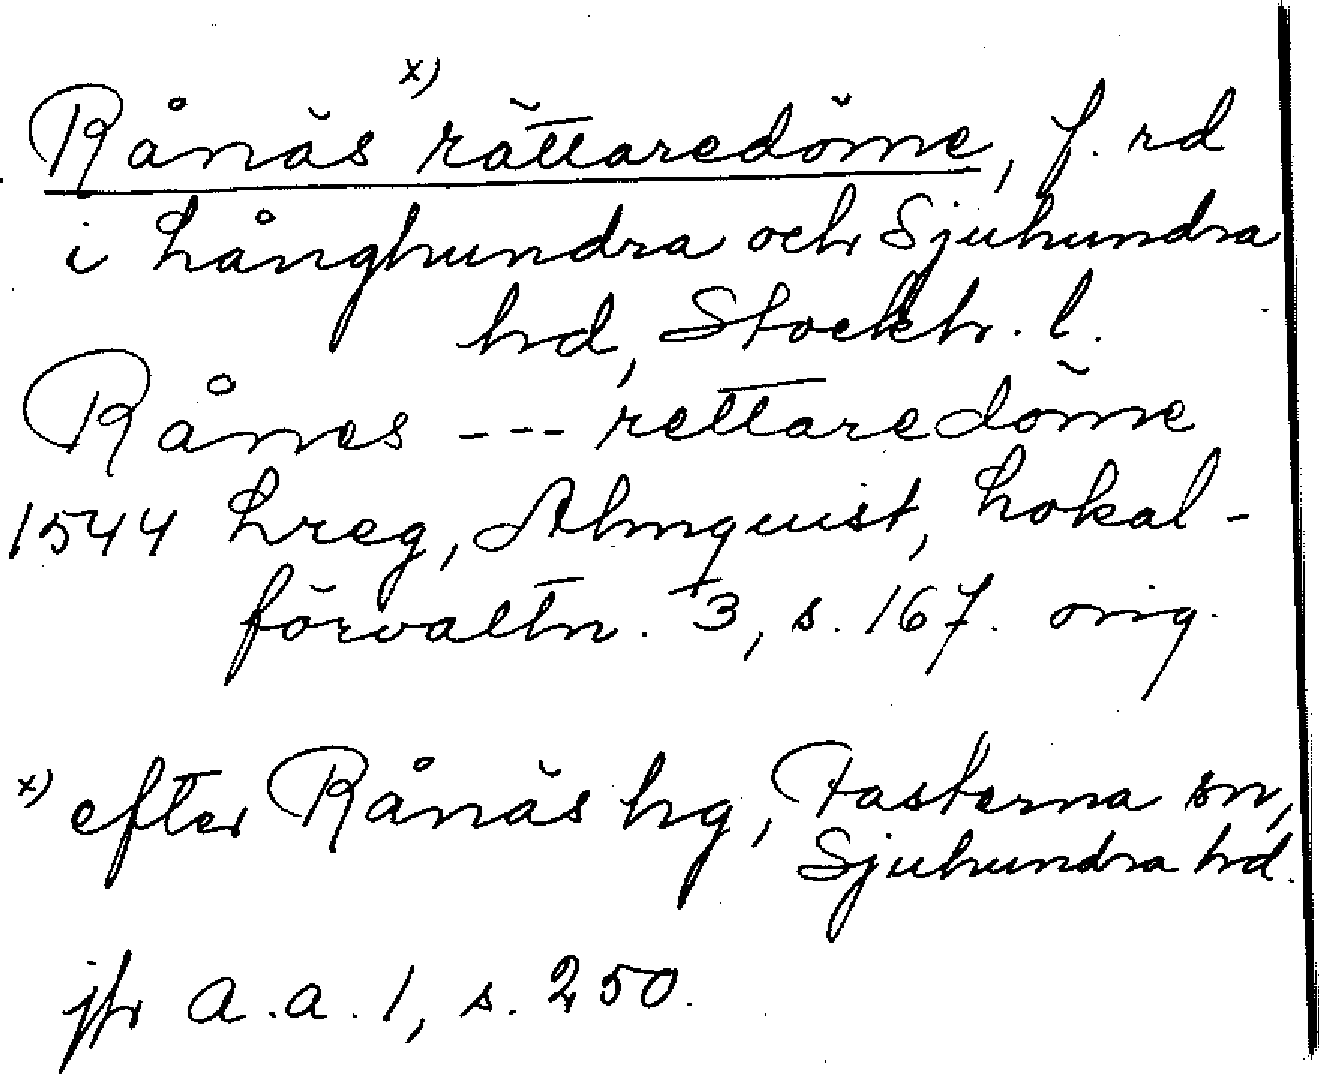 Rånäs x) rättaredöme, f. rd
i Långhundra och Sjuhundra
hd, Stockh. l.
Rånes --- rettaredöme
1544 Lreg, Almquist, Lokal-
förvaltn. 3, s. 167. orig.
x) efter Rånäs hg, Fasterna sn,
Sjuhundra hd.
jfr a.a. 1, s. 250.